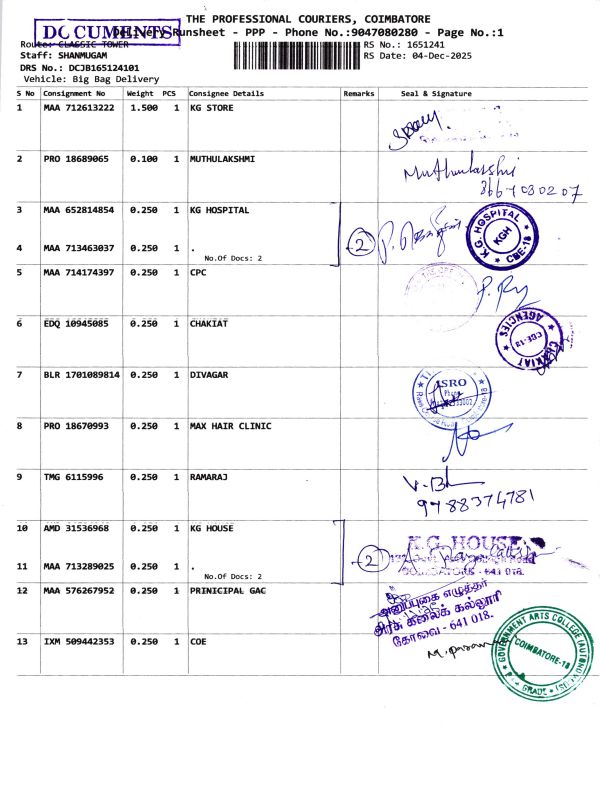 THE PROFESSIONAL COURIERS, COIMBATORE
DOCUMENTS
Delivery Runsheet - PPP - Phone No.:9047080280 - Page No.:1
Route: CLASSIC TOWER
RS No.: 1651241
Staff: SHANMUGAM
RS Date: 04-Dec-2025
DRS No.: DCJB165124101
Vehicle: Big Bag Delivery
S No Consignment No Weight PCS Consignee Details Remarks Seal & Signature
1 MAA 712613222 1.500 1 KG STORE
2 PRO 18689065 0.100 1 MUTHULAKSHMI
Muthulakshmi
3 MAA 652814854 0.250 1 KG HOSPITAL
2
K.G. HOSPITAL
KGH
CBE-18
4 MAA 713463037 0.250 1 .
No.Of Docs: 2
5 MAA 714174397 0.250 1 CPC
6 EDQ 10945085 0.250 1 CHAKIAT
CHAKIAT AGENCIES
CBE-18
7 BLR 1701089814 0.250 1 DIVAGAR
ISRO
Phone
8 PRO 18670993 0.250 1 MAX HAIR CLINIC
9 TMG 6115996 0.250 1 RAMARAJ
9788374781
10 AMD 31536968 0.250 1 KG HOUSE
K.G. HOUSE
2
11 MAA 713289025 0.250 1 .
COIMBATORE - 641 018.
No.Of Docs: 2
12 MAA 576267952 0.250 1 PRINICIPAL GAC
அரசு கலைக் கல்லூரி
கோவை - 641 018.
13 IXM 509442353 0.250 1 COE
GOVERNMENT ARTS COLLEGE
COIMBATORE-18
GRADE